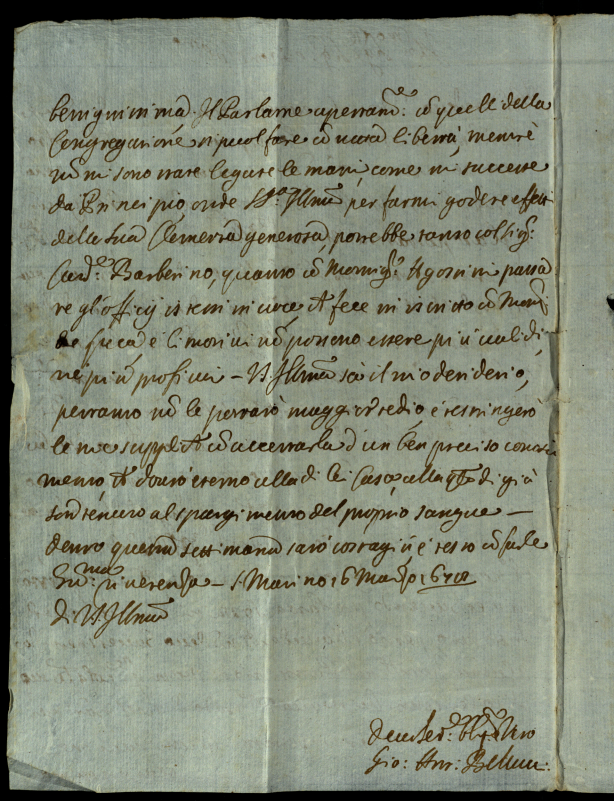 benignissima. Il Parlarne apertam.te cō quelli della
Congregatione si puol fare cō tutta libertà, mentre
nō mi sono state legate le mani come mi successe
da Principio, onde V.S. Ill.ma per farmi godere effetti
della sua Clemenza generosa, potrebbe tanto col Sig.r
Card.e Barberino, quanto cō Monsig.r Ugolini passa
re gl'officij istessi in voce che fece in iscritto cō Mons.r
e li motivi nō possono essere più validi
nè più proficui – V.S. Ill.ma sà il mio desiderio,
pertanto nō le porterò maggior tedio, e restringerò
le mie supp.che cō accertarla d'un ben preciso
mento che dovrò eterno alla di lei Casa alla q.le di già
son tenuto al spargimento del proprio sangue –
dentro questa settimana sarò costagiù, e resto cō farle
hum.ma riverenza – S. Marino 16 Marzo
di V.S. Ill.ma
Dev. Ser.e obl.mo vero
Gio: Ant: Belluzzi